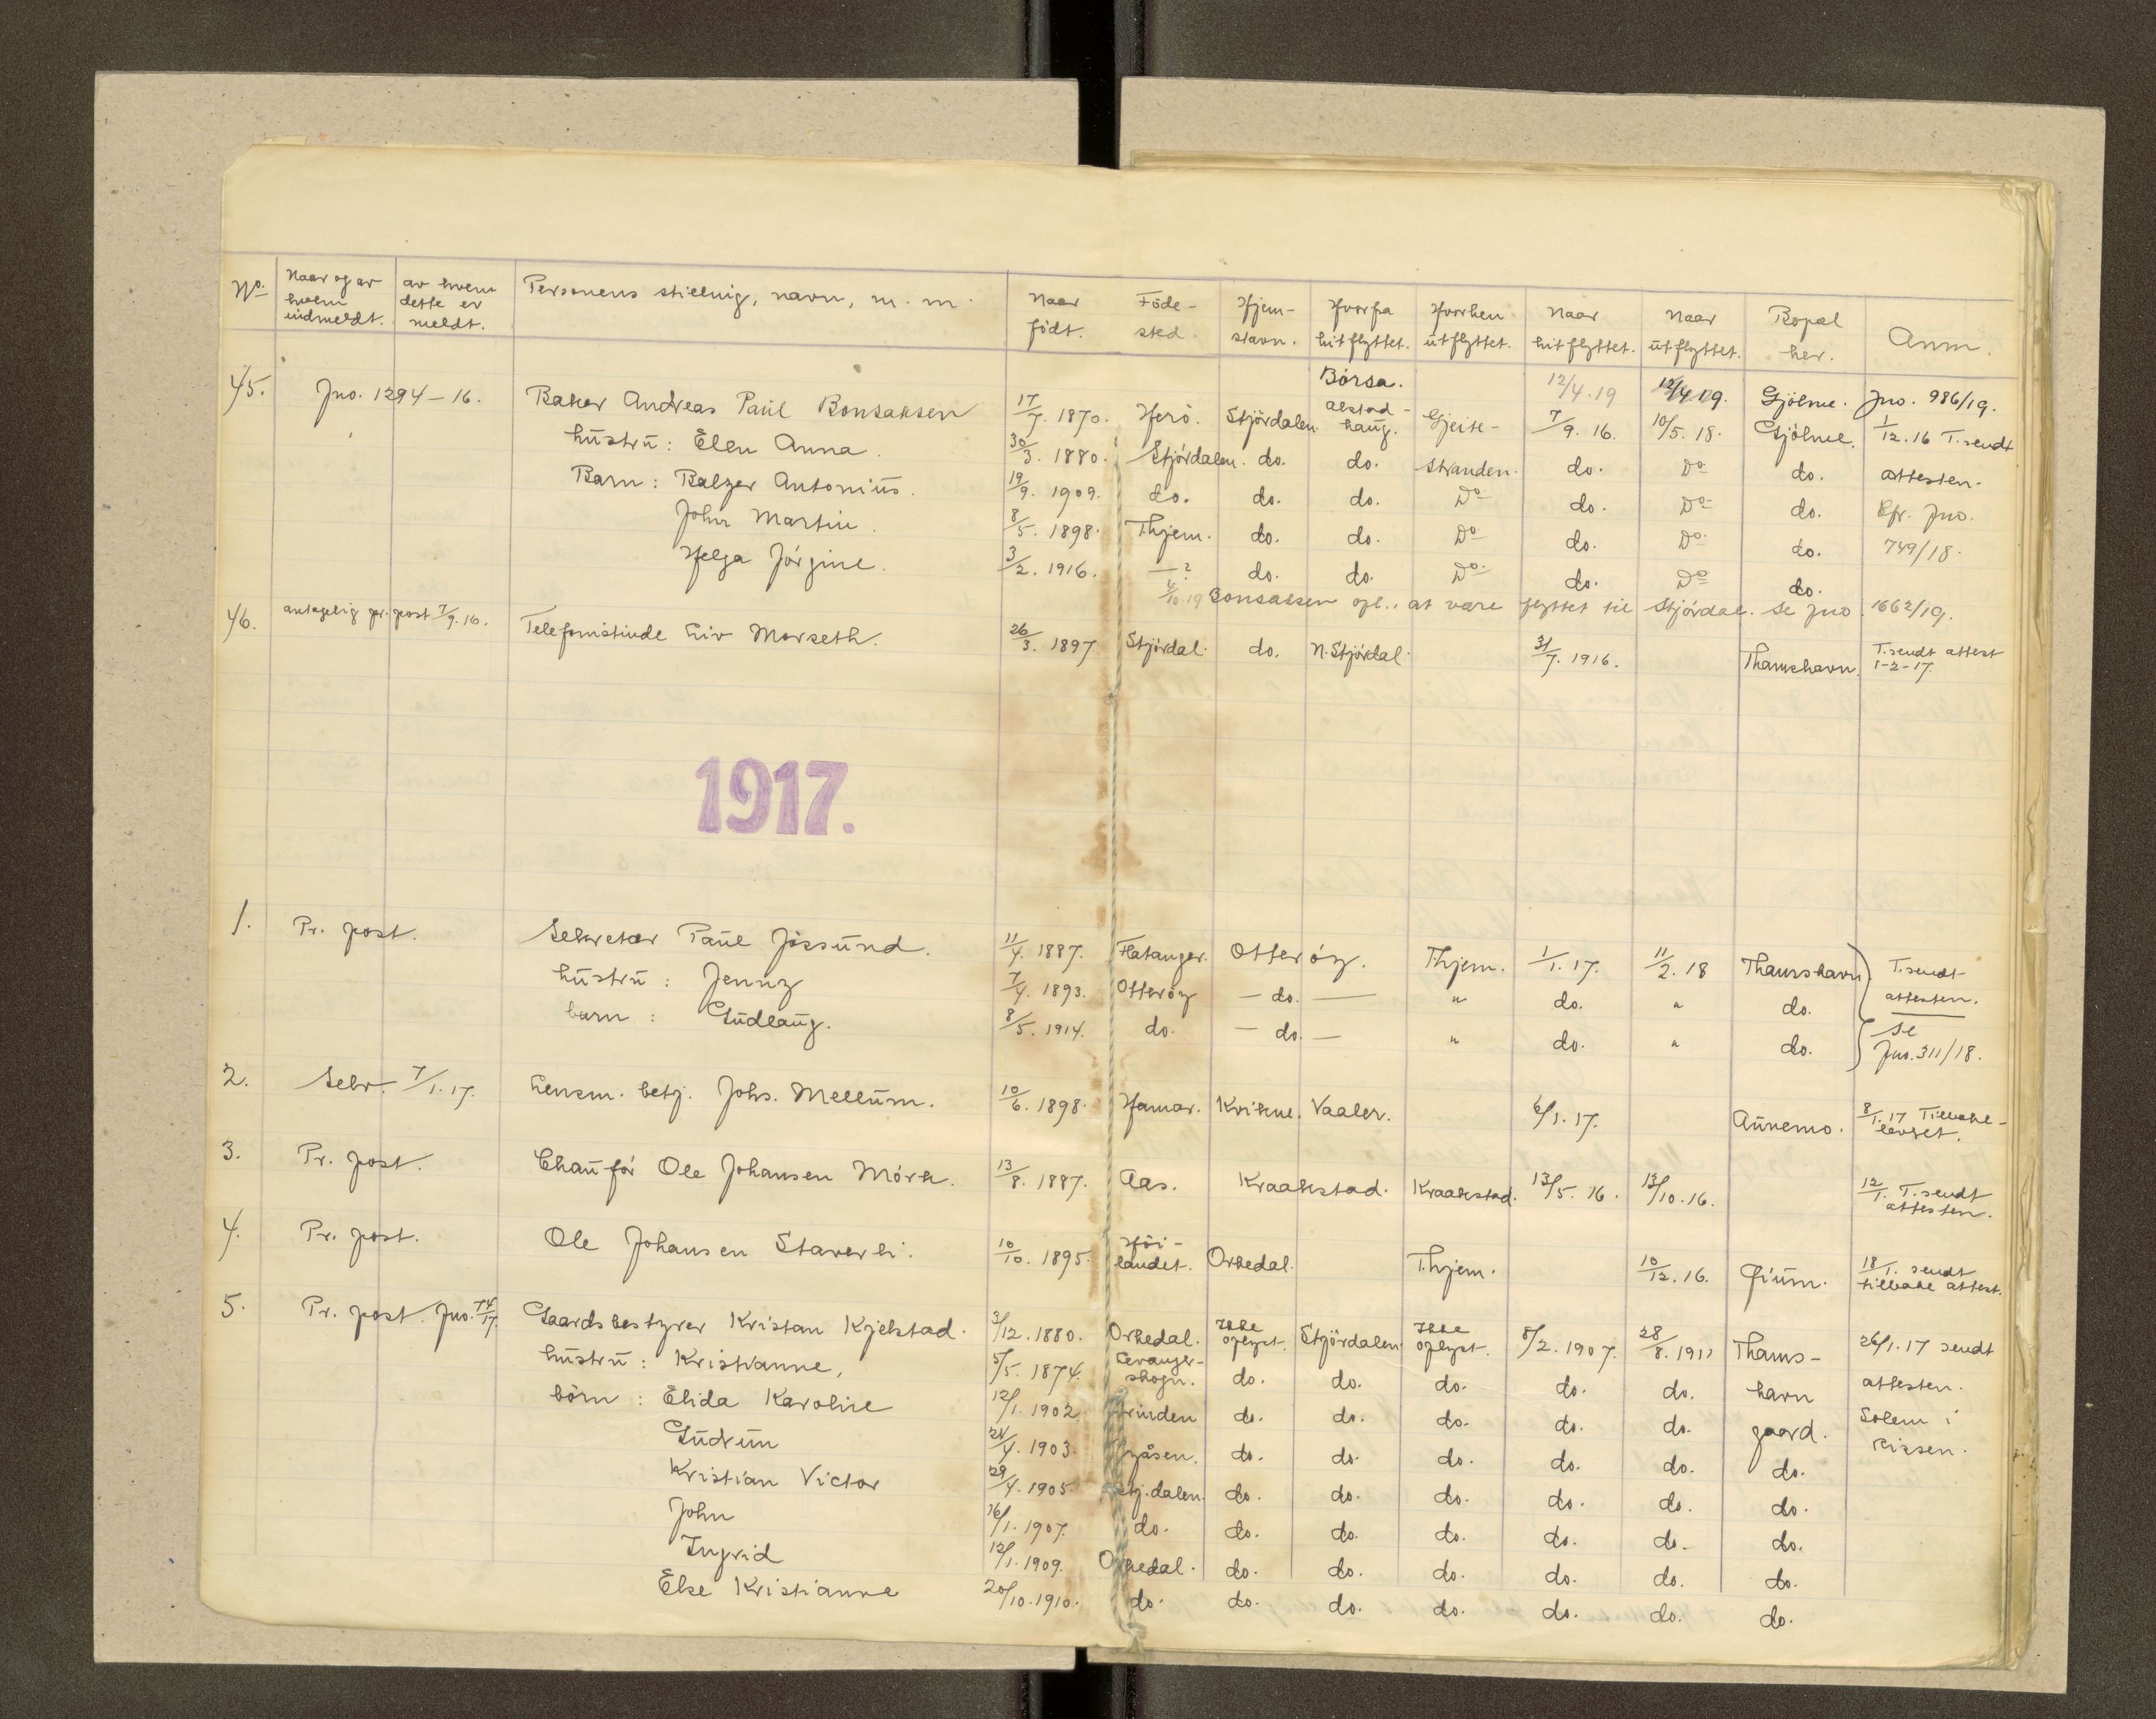 No. Naar og av hvem indmeldt. av hvem dette er meldt. Personens stilling, navn, m. m. Naar født. Föde-sted. Hjem-stavn. Hvorfra hitflyttet. Hvorhen utflyttet. Naar hitflyttet. Naar utflyttet. Bopæl her. Anm.
Börsa. 12/4.19 12/4 19. Gjölme. Jno. 986/19.
45. Jno. 1294-16. Baker Andreas Paul Bonsaksen 17/7. 1870. Herö. Stjördalen. alstad-haug. Gjeite- 7/9. 16. 10/5. 18. Gjölme. 1/12.16 T. sendt
hustru: Ellen Anna. 30/3. 1880. Stjördalen. do. do. stranden. do. Do do. attesten.
Barn: Balzer Antonius. 19/9. 1909. do. do. do. Do do. Do do. Cfr. Jno.
John Martin. 8/5. 1898. Thjem. do. do. Do do. Do do. 749/18.
Helga Jörgine. 3/2. 1916. —? do. do. Do do. Do do.
4/10.19 Bonsaksen opl. at være flyttet til Stjördal. Se Jno. 1662/19.
46. antagelig pr. post 7/9. 16. Telefonistinde Liv Morseth. 26/3. 1897. Stjördal. do. N. Stjördal. 31/7. 1916. Thamshavn. T. sendt attest 1-2-17.
1917.
1. Pr. post. Sekretær Paul Jössund. 11/4. 1887. Flatanger. Otteröy. Thjem. 1/1. 17. 11/2. 18 Thamshavn T. sendt
hustru: Jenny 7/4. 1893. Otteröy — do. — " do. " do. attesten.
barn: Gudlaug. 8/5. 1914. do. — do. — " do. " do. Se Jno. 311/18.
2. Selv. 7/1. 17. Lensm. betj. Johs. Mellum. 10/6. 1898. Hamar. Kvikne. Vaaler. 6/1. 17. Aunemo. 8/1. 17 Tilbake-levert.
3. Pr. post. Chauför Ole Johansen Mörk. 13/8. 1887. Aas. Kraakstad. Kraakstad. 13/5. 16. 13/10. 16. 12/1. T. sendt attesten.
4. Pr. post. Ole Johansen Staverli. 10/10. 1895. Höi-landet. Orkedal. T.hjem. 10/12. 16. 18/1. sendt tilbake attest.
5. Pr. post. Jno. 74/17. Gaardsbestyrer Kristian Kjelstad. 3/12. 1880. Orkedal. Ikke oplyst. Stjördalen. Ikke oplyst. 8/2. 1907. 28/8. 1911 Thams- 26/1. 17 sendt
hustru: Kristianne, 5/5. 1874. Levanger-skogn. do. do. do. do. do. havn attesten.
börn: Elida Karoline 12/1. 1902. Strinden do. do. do. do. do. gaard. Solem i
Gudrun 21/4. 1903. Byåsen. do. do. do. do. do. do. Rissen.
Kristian Victor 29/4. 1905. Stj.dalen. do. do. do. do. do. do.
John 16/1. 1907. do. do. do. do. do. do. do.
Ingrid 12/1. 1909. Orkedal. do. do. do. do. do. do.
Else Kristianne 20/10. 1910. do. do. do. do. do. do. do.